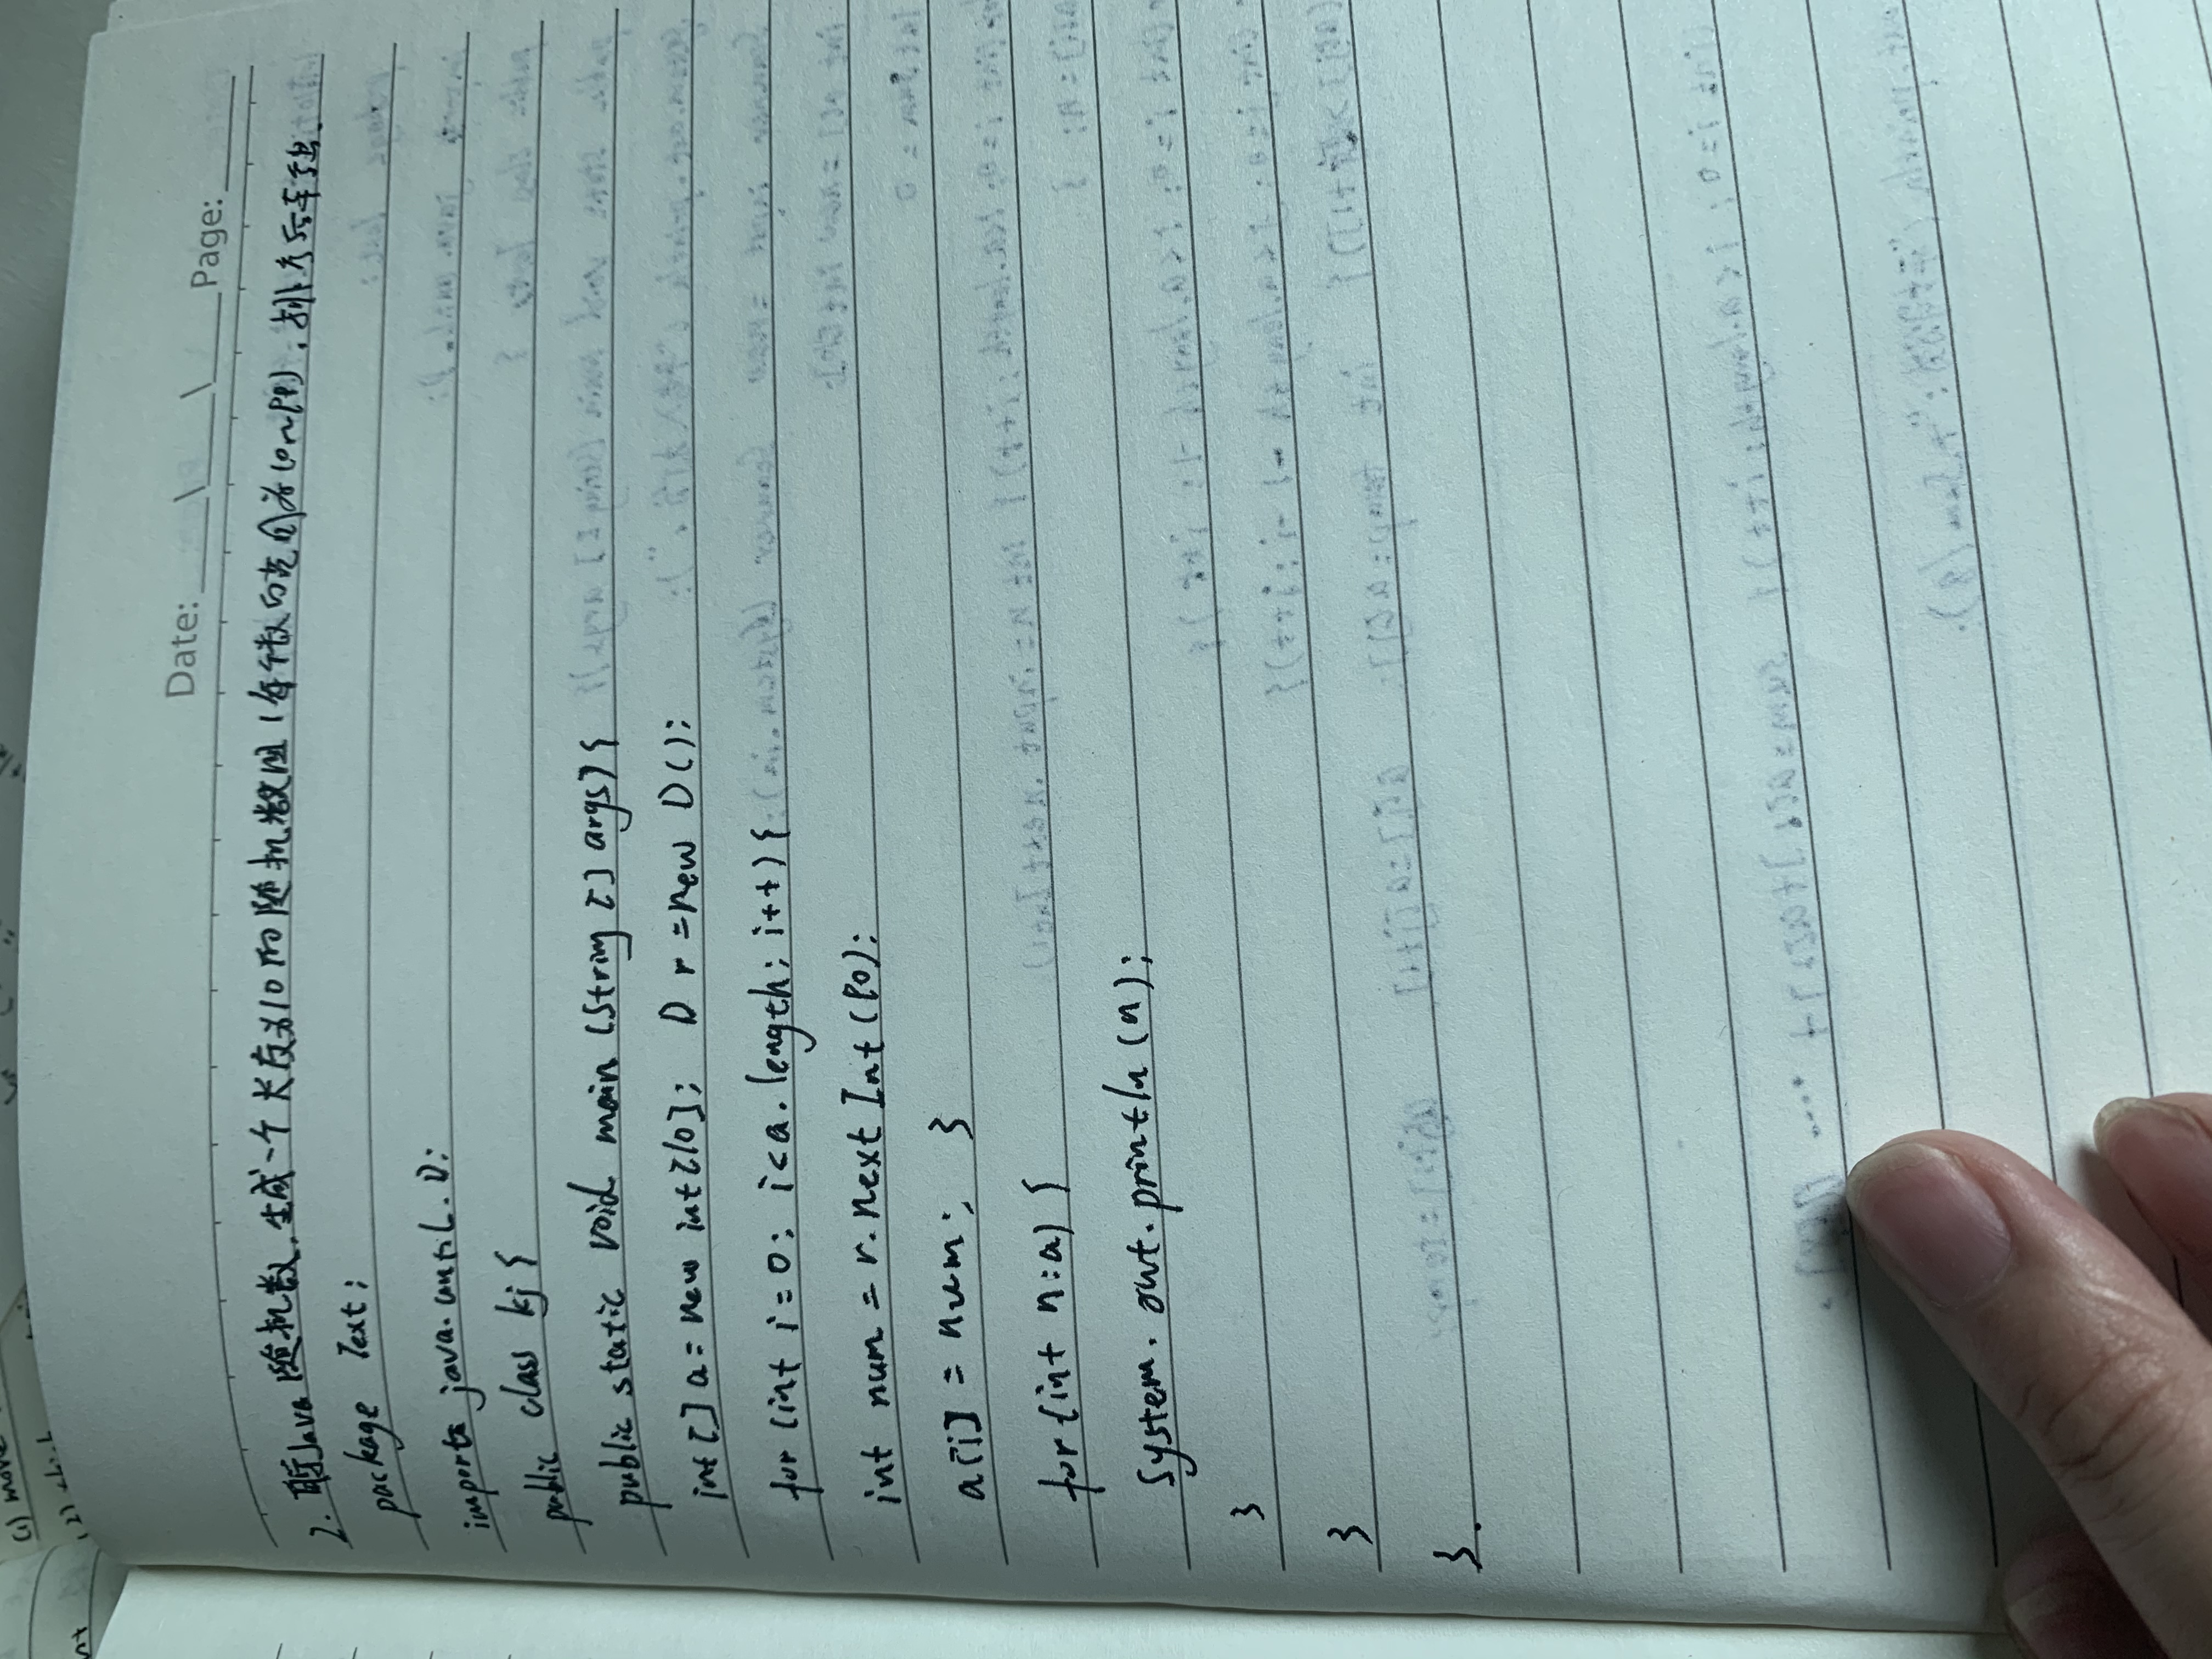 Date: Page:
2. 用Java随机数,生成一个长度为10的随机数组(每个数的范围为(0~99),排序后输出
package Text;
imports java.until.D;
public class kj {
public static void main (String [] args) {
int [] a = new int [10]; D r = new D();
for (int i = 0; i < a.length; i++) {
int num = r.nextInt(90);
a[i] = num; }
for (int n:a) {
System.out.println(n);
}
}
}
(1) move
(2)